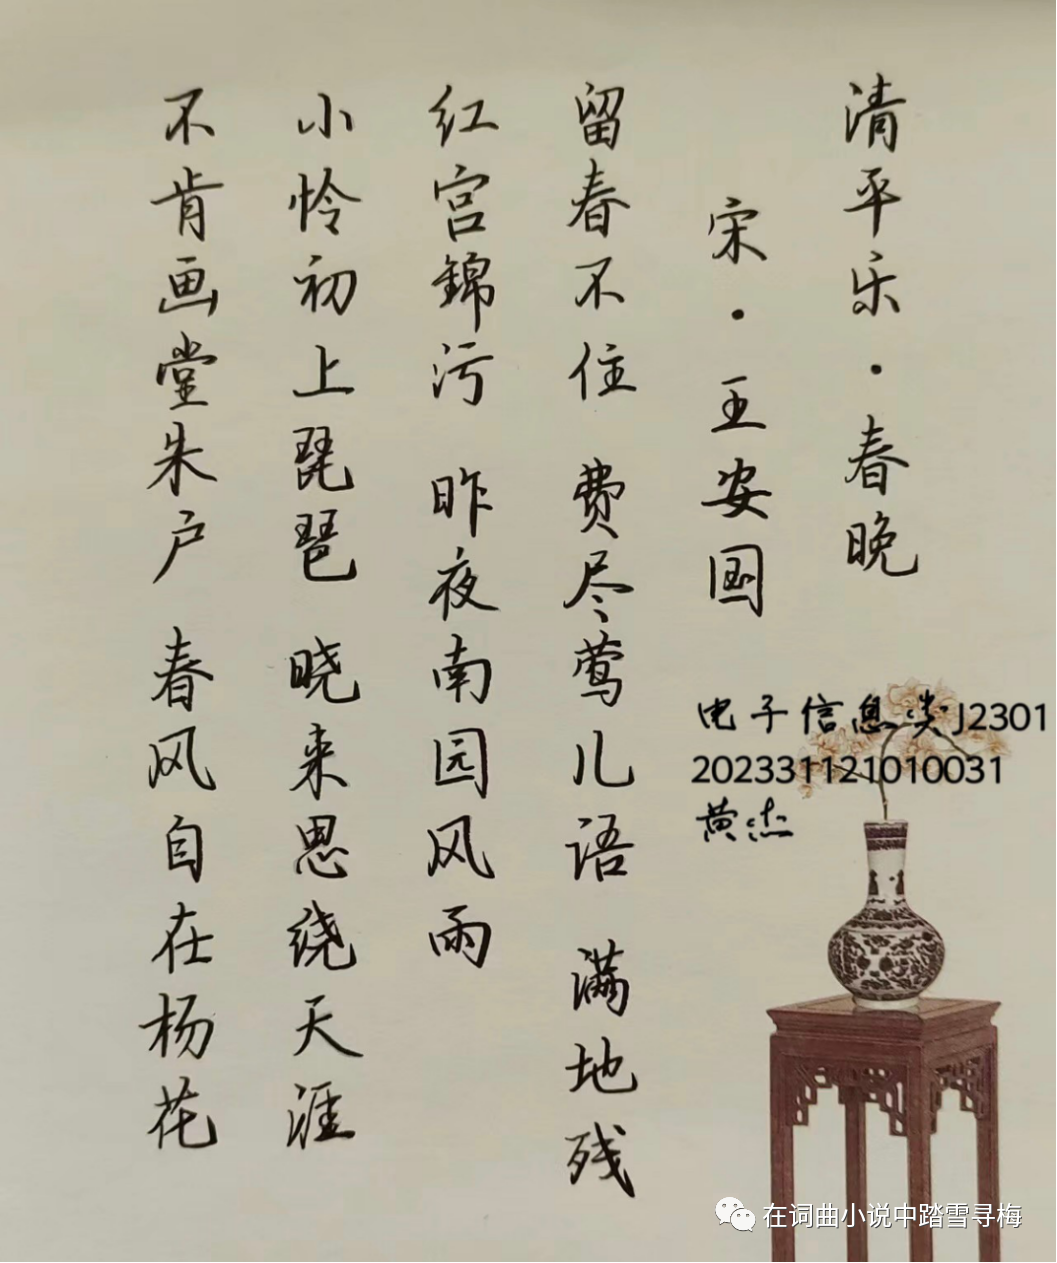 清平乐·春晚
宋·王安国
留春不住 费尽莺儿语 满地残
红宫錦污 昨夜南园风雨
小怜初上琵琶 晓来思绕天涯
不肯画堂朱户 春风自在杨花
电子信息类J2301
202331121010031
黄杰
在词曲小说中踏雪寻梅